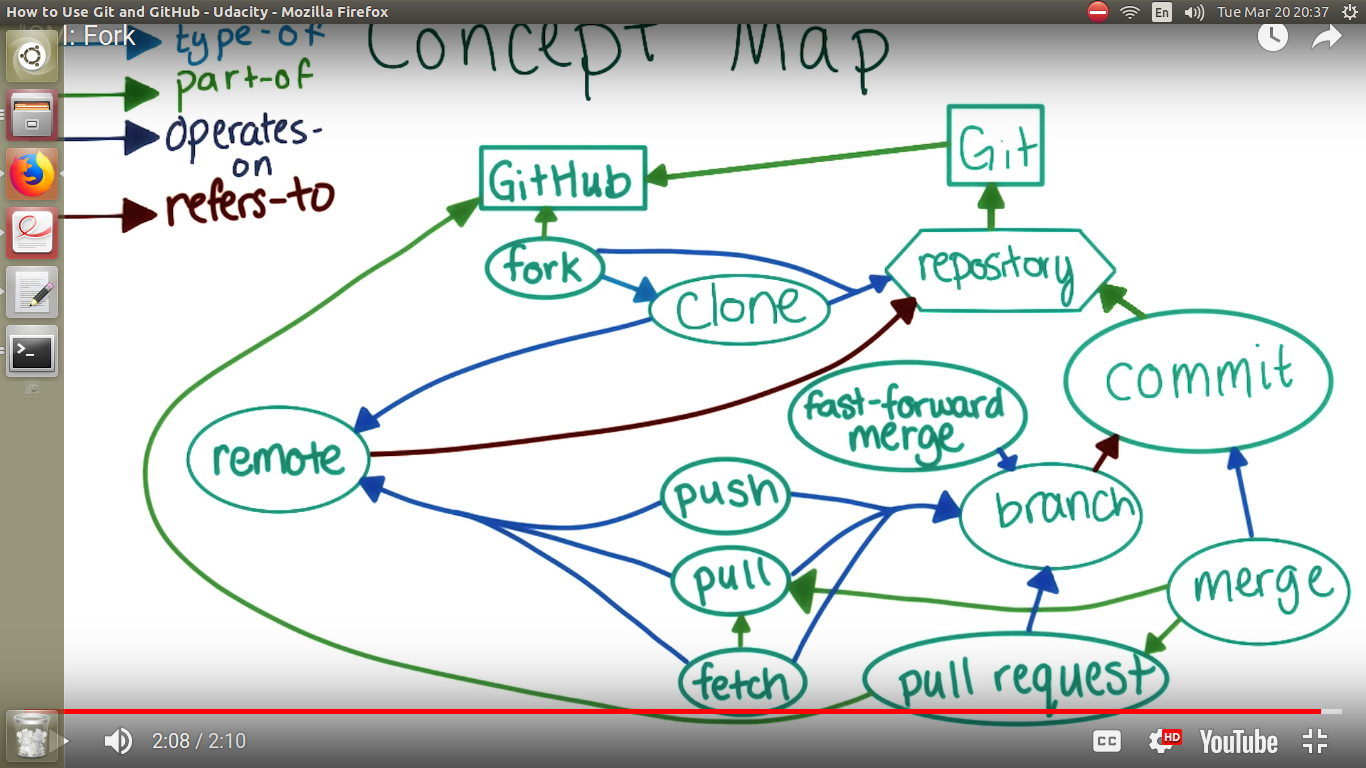 How to Use Git and GitHub - Udacity - Mozilla Firefox
En
Tue Mar 20 20:37
M: Fork
type-of
Concept Map
part-of
operates-
on
refers-to
Git
GitHub
fork
repository
clone
commit
fast-forward
merge
remote
push
branch
pull
merge
fetch
pull request
2:08 / 2:10
CC
HD
YouTube